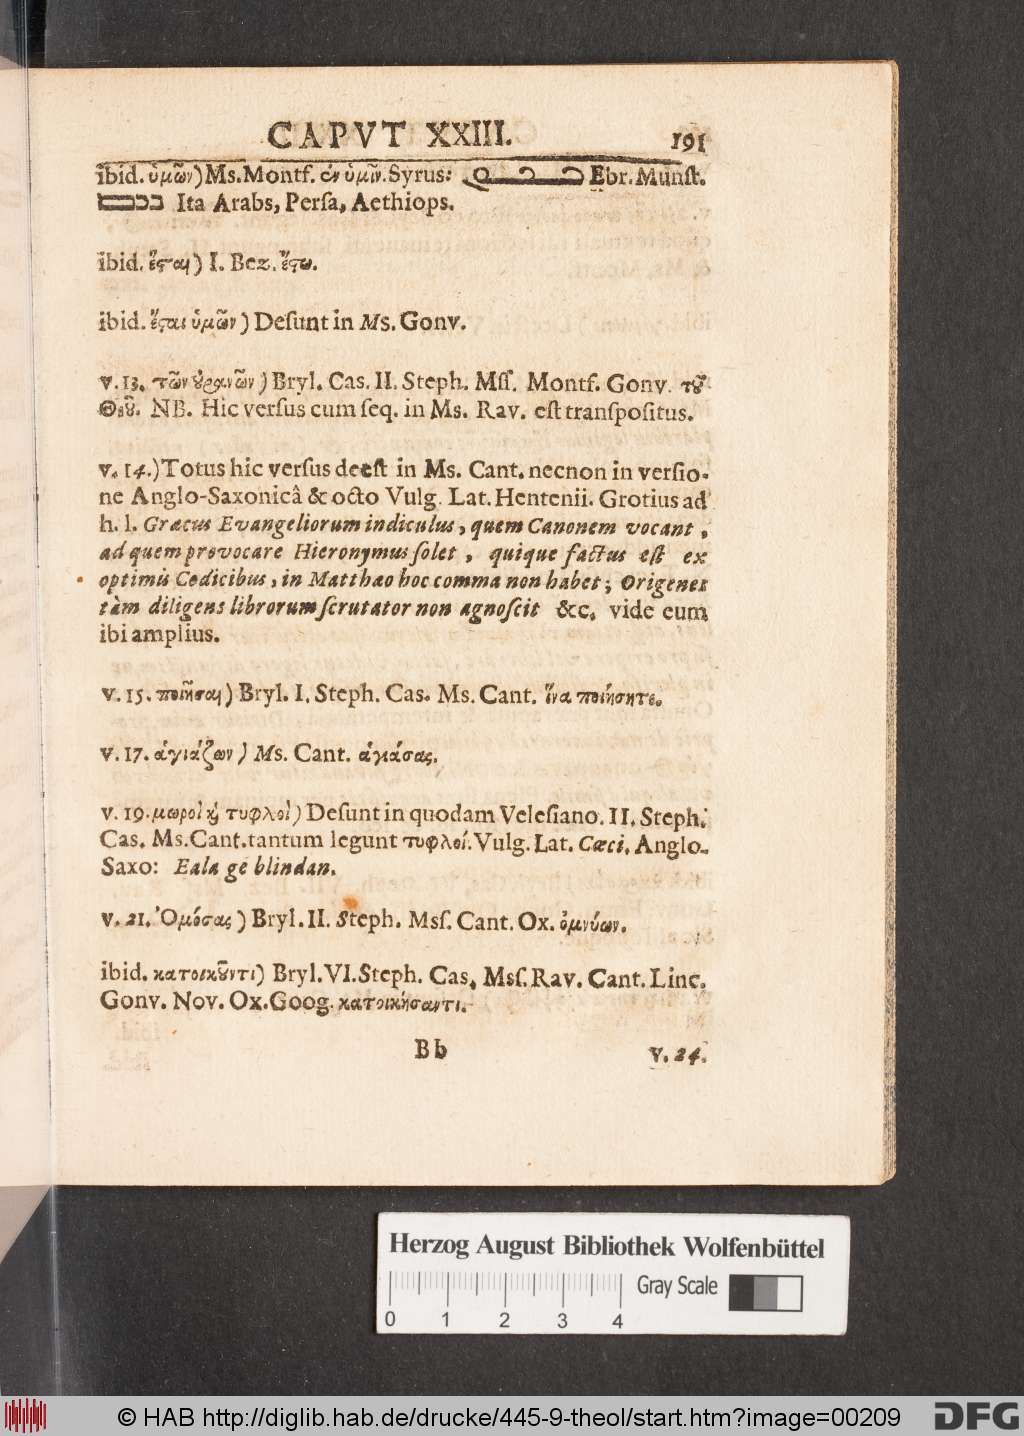 CAPVT XXIII. 191
ibid. ὑμῶν) Ms. Montf. ἐν ὑμῖν. Syrus: Ebr. Munſt.
Ita Arabs, Perſa, Aethiops.
ibid. ἔςαι) I. Bez. ἔςω.
ibid. ἔςαι ὑμῶν) Deſunt in Ms. Gonv.
v. 13. τῶν οὐρανῶν) Bryl. Cas. II. Steph. Mſſ. Montf. Gonv. τοῦ
Θεοῦ. NB. Hic verſus cum ſeq. in Ms. Rav. eſt tranſpoſitus.
v. 14.) Totus hic verſus deeſt in Ms. Cant. necnon in verſio-
ne Anglo-Saxonicâ & octo Vulg. Lat. Hentenii. Grotius ad
h. l. Græcus Evangeliorum indiculus, quem Canonem vocant,
ad quem provocare Hieronymus ſolet, quique factus eſt ex
optimis Codicibus, in Matthæo hoc comma non habet; Origenes
tàm diligens librorum ſcrutator non agnoſcit &c. vide eum
ibi amplius.
v. 15. ποιῆσαι) Bryl. I. Steph. Cas. Ms. Cant. ἵνα ποιήσητε.
v. 17. ἁγιάζων) Ms. Cant. ἁγιάσας.
v. 19. μωροὶ καὶ τυφλοὶ) Deſunt in quodam Veleſiano. II. Steph.
Cas. Ms. Cant. tantum legunt τυφλοί. Vulg. Lat. Cœci. Anglo-
Saxo: Eala ge blindan.
v. 21. Ὀμόσας) Bryl. II. Steph. Msſ. Cant. Ox. ὀμνύων.
ibid. κατοικοῦντι) Bryl. VI. Steph. Cas. Msſ. Rav. Cant. Linc.
Gonv. Nov. Ox. Goog. κατοικήσαντι.
Bb v. 24.
Herzog August Bibliothek Wolfenbüttel
Gray Scale
0 1 2 3 4
© HAB http://diglib.hab.de/drucke/445-9-theol/start.htm?image=00209 DFG